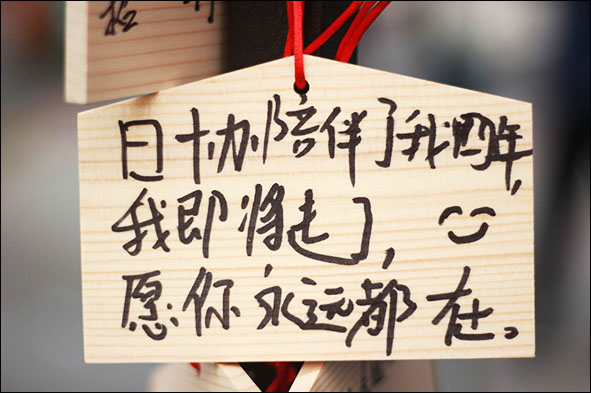 日协陪伴了我四年，
我即将走了，
愿你永远都在。